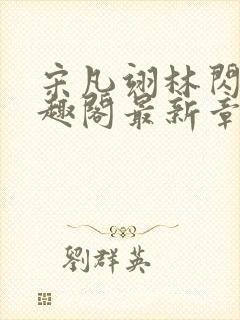 宋凡翊林閃
趣閣最新章
劉群英